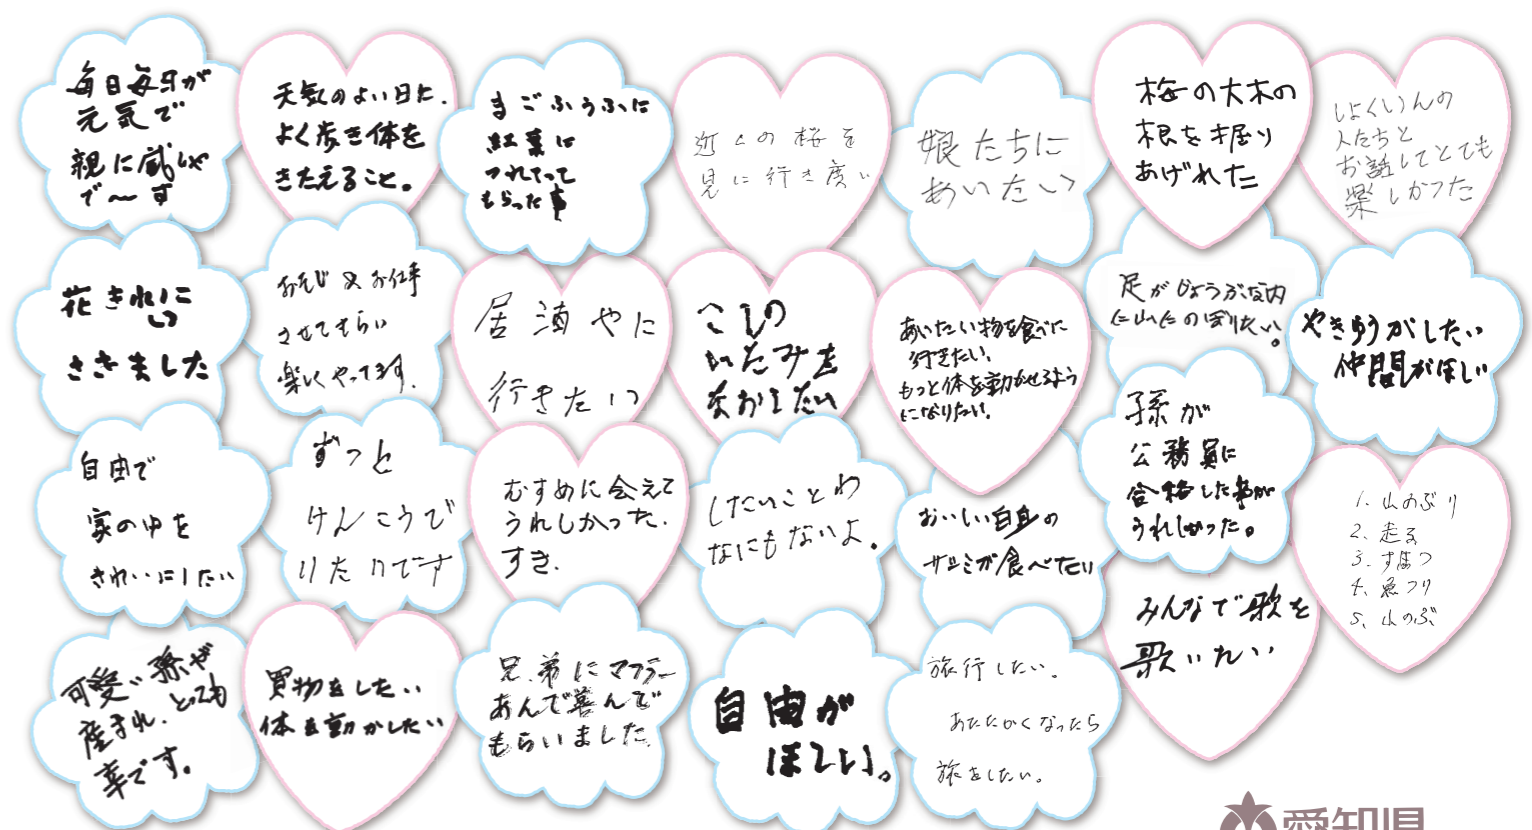 毎日毎日が
元気で
親に感しゃ
で〜す
天気のよい日に.
よく歩き体を
きたえること。
まごふうふに
紅葉に
つれてって
もらった事
近くの桜を
見に行き度い
娘たちに
あいたい
梅の大木の
根を掘り
あげれた
しょくいんの
人たちと
お話してとても
楽しかった
花きれいに
さきました
おそじやお仕事
させてもらい
楽しくやってます.
居酒やに
行きたい
こしの
いたみを
なおしたい
あいたい物を食べに
行きたい。
もっと体を動かせるよう
になりたい。
足がじょうぶな内
に山にのぼりたい。
やきゅうがしたい
仲間がほしい
自由で
家の中を
きれいにしたい
ずっと
けんこうで
いたいです
むすめに会えて
うれしかった.
すき.
したいことわ
なにもないよ。
おいしい白身の
サシミが食べたい
孫が
公務員に
合格した事が
うれしかった。
1. 山のぶり
2. 走る
3. すもう
4. 魚つり
5. 山のぶ
可愛い孫が
産まれ、とっても
幸です。
買物をしたい
体を動かしたい
兄.弟にマフラー
あんで喜んで
もらいました.
自由が
ほしい。
旅行したい。
あたたかくなったら
旅をしたい。
みんなで歌を
歌いたい
愛知県